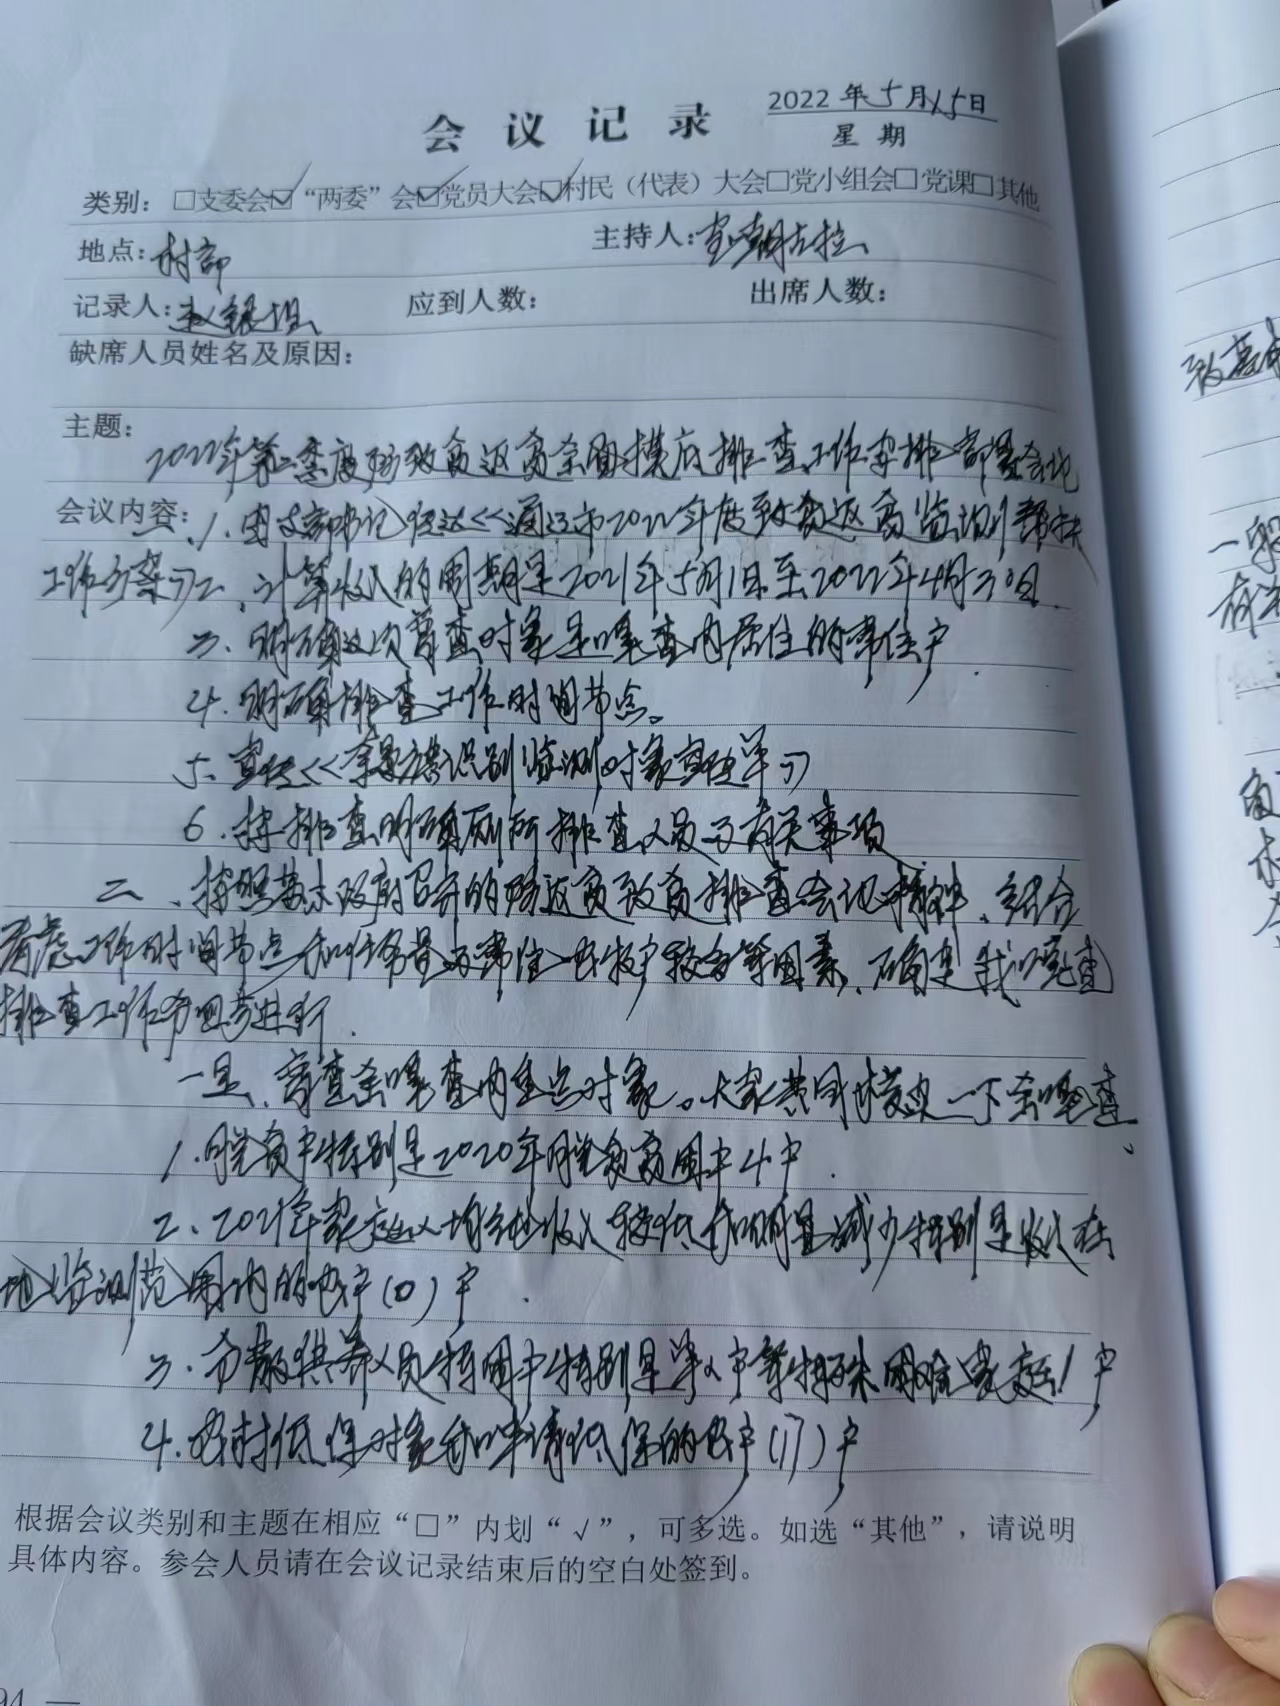 会议记录
2022年5月15日
星期
类别：□支委会☑“两委”会☑党员大会☑村民（代表）大会□党小组会□党课□其他
地点：村部
主持人：宝朝古拉
记录人：赵银坦
应到人数：
出席人数：
缺席人员姓名及原因：
主题：
2022年第二季度防致贫返贫全面摸底排查工作安排部署会议
会议内容：1.由支部书记传达《通辽市2022年度致贫返贫监测帮扶
工作方案》2、计算收入的周期是2021年5月1日至2022年4月30日.
3.明确这次普查对象是嘎查内居住的常住户.
4.明确排查工作时间节点。
5.宣传《奈曼旗识别监测对象宣传单》
6.按排查明确厕所排查人员与有关事项
二、按照苏木政府召开的防返贫致贫排查会议精神、结合
考虑工作时间节点和任务量与常住农牧户较多等因素、确定我嘎查
排查工作分四步进行.
一是、审查全嘎查内重点对象。大家共同摸点一下全嘎查、
1.脱贫户特别是2020年脱贫贫困户4户.
2、2021年家庭人均纯收入较低和明显减少特别是收入在
地监测范围内的农户(0)户.
3.分散供养人员特困户特别是单人户等特殊困难家庭1户
4.农村低保对象和申请低保的农户(17)户
根据会议类别和主题在相应“□”内划“√”，可多选。如选“其他”，请说明
具体内容。参会人员请在会议记录结束后的空白处签到。
94 —
致贫
一般